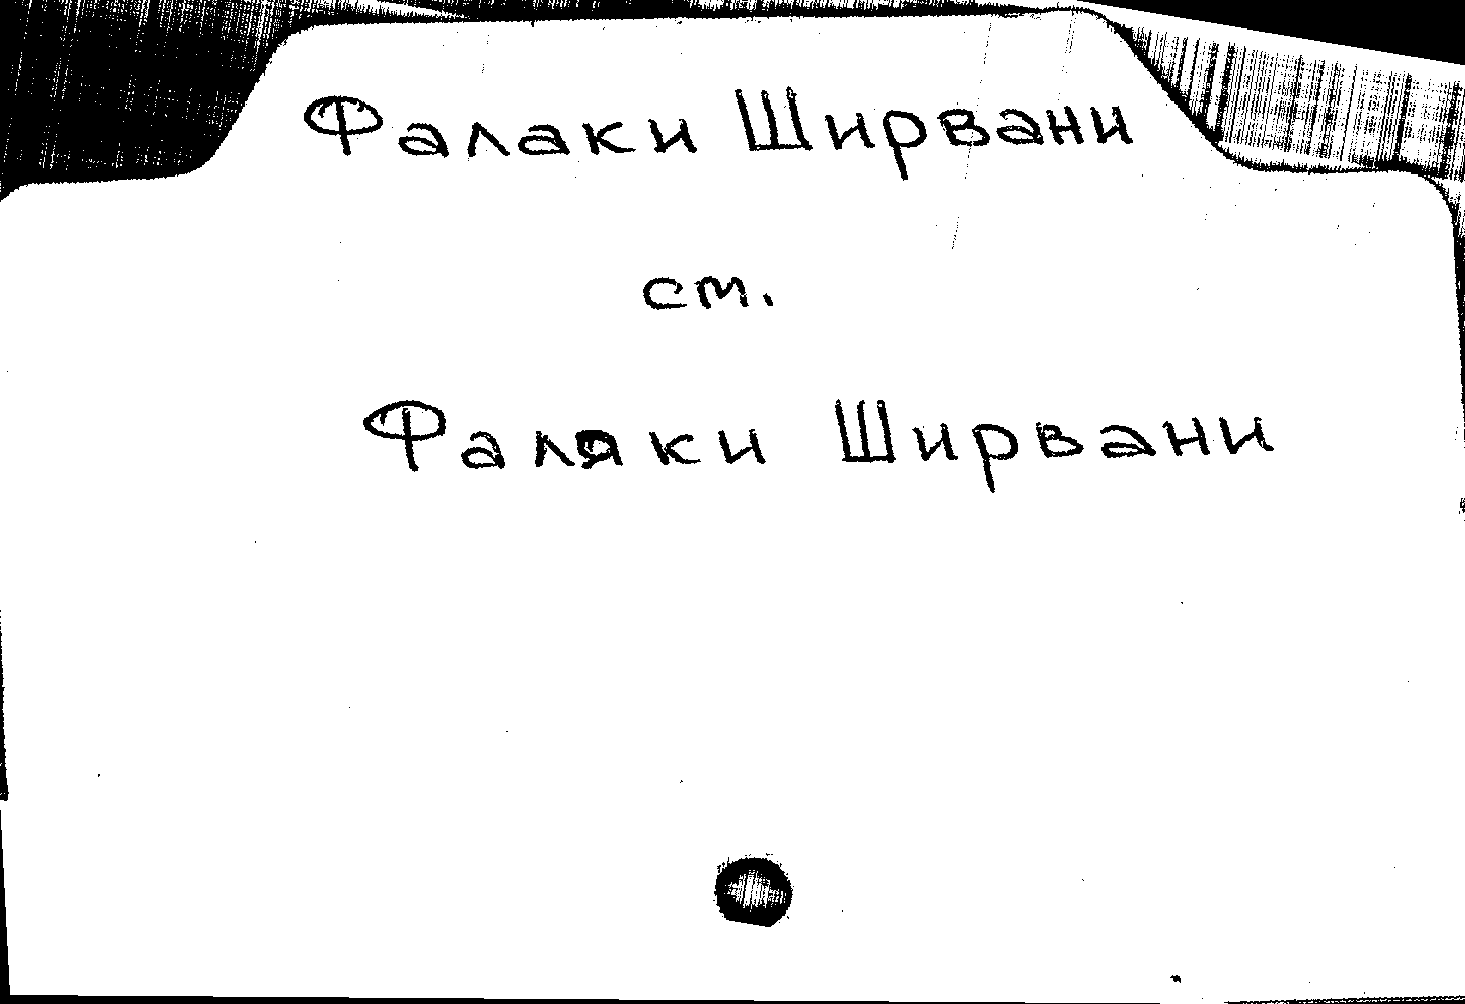 Фалаки Ширвани
см.
Фаляки Ширвани